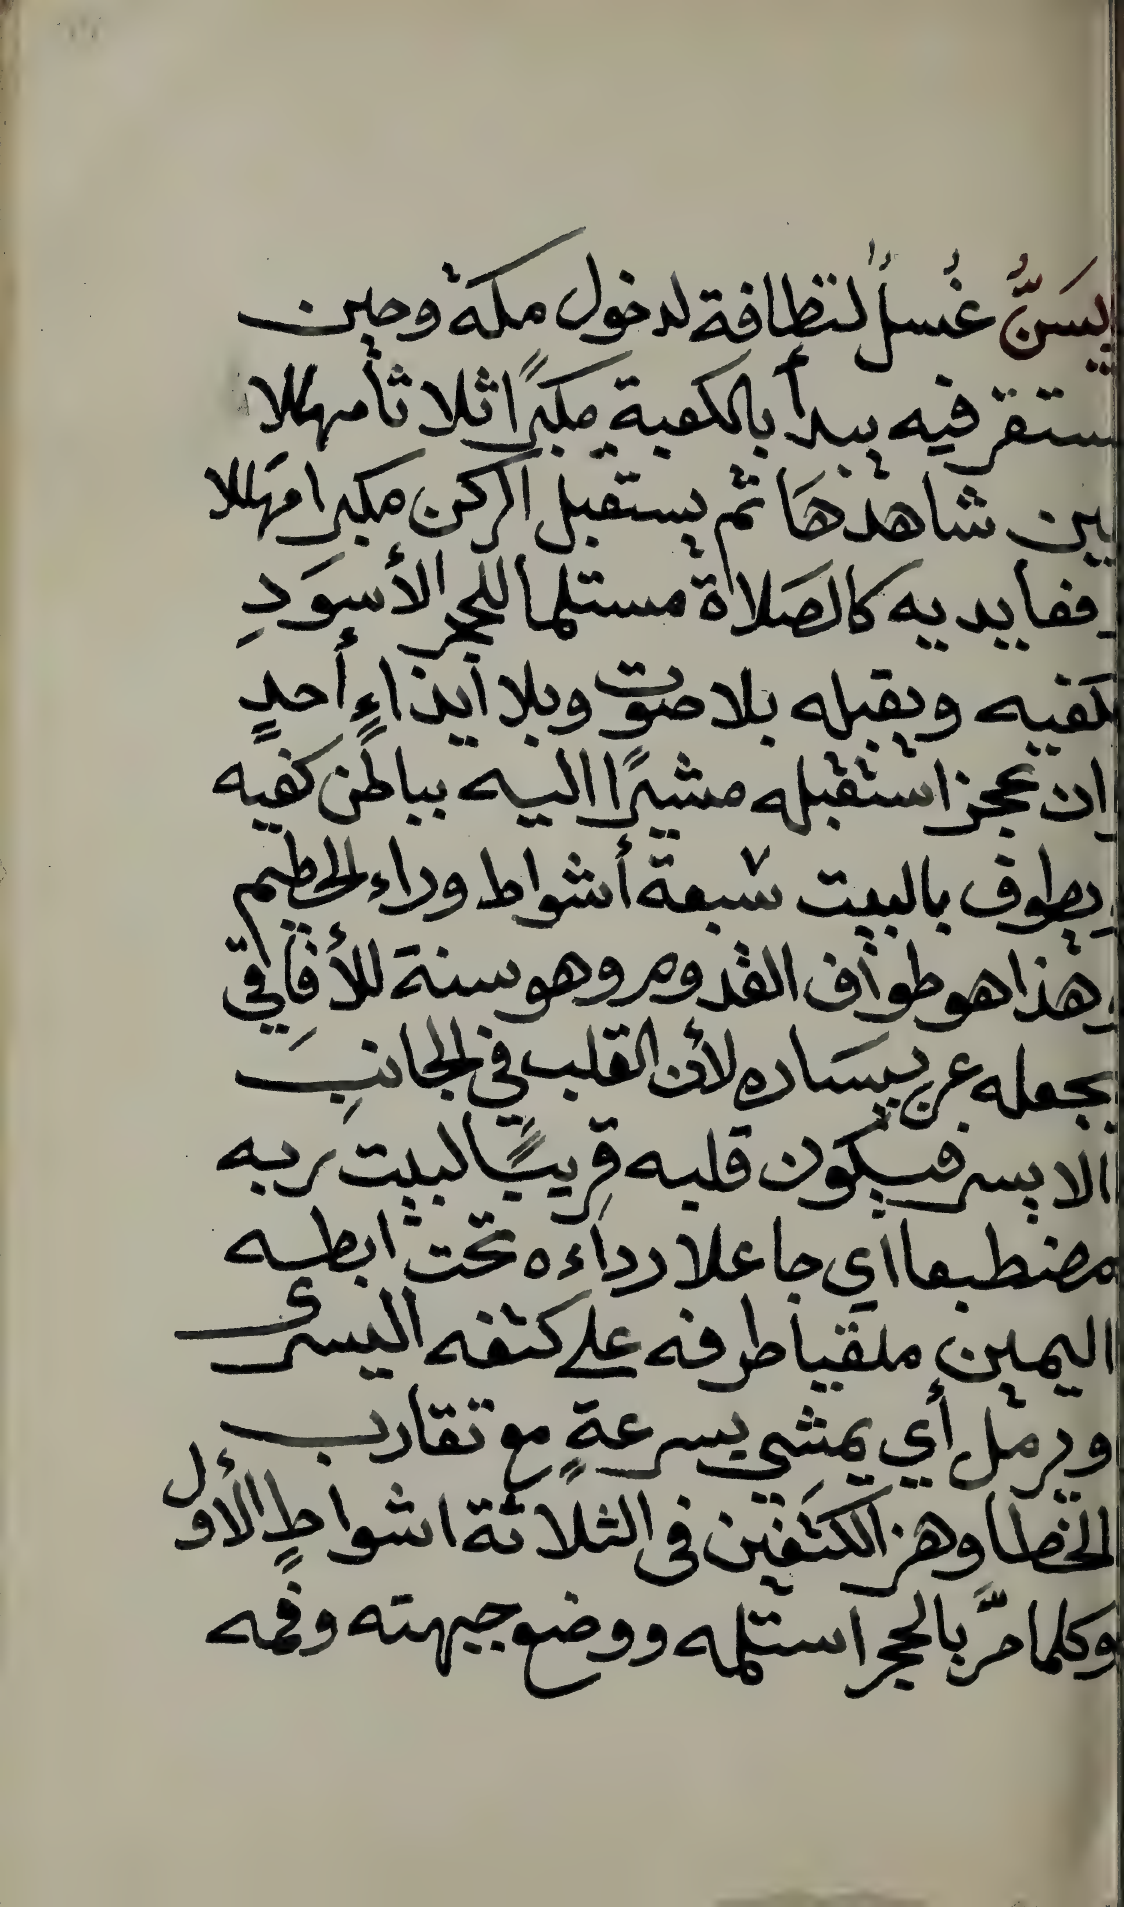 يسَنُّ غُسلٌ لنظافة لدخول مكة وحين
يستقر فيه يبدأ بالكعبة مكبرًا ثلاثا مهللا
حين شاهدهَا ثم يستقبل الركن مكبرا مهَللا
رافعا يديه كالصَلاة مستلما للحجر الأسوَدِ
بكفيه ويقبله بلا صوت وبلا ايذاءٍ أحدٍ
وان عجز استقبله مشيرًا اليه بباطن كفيه
ويطوف بالبيت سبعة أشواط وراء الحطيم
وهذا هو طواف القدوم وهو سنة للأفاقي
يجعله عن يسَاره لأن القلب في الجانبِ
الايسر فيكون قلبه قريبًا لبيت ربه
مضطبعا اي جاعلا رداءه تحت ابطه
اليمين ملقيا طرفه على كتفه اليسرى
ويرمل أي يمشي بسرعةٍ مع تقارب
الخطا وهز الكتَفين في الثلاثة اشواطٍ الأول
وكلما مرَّ بالحجر استلمه ووضع جبهته وفمه